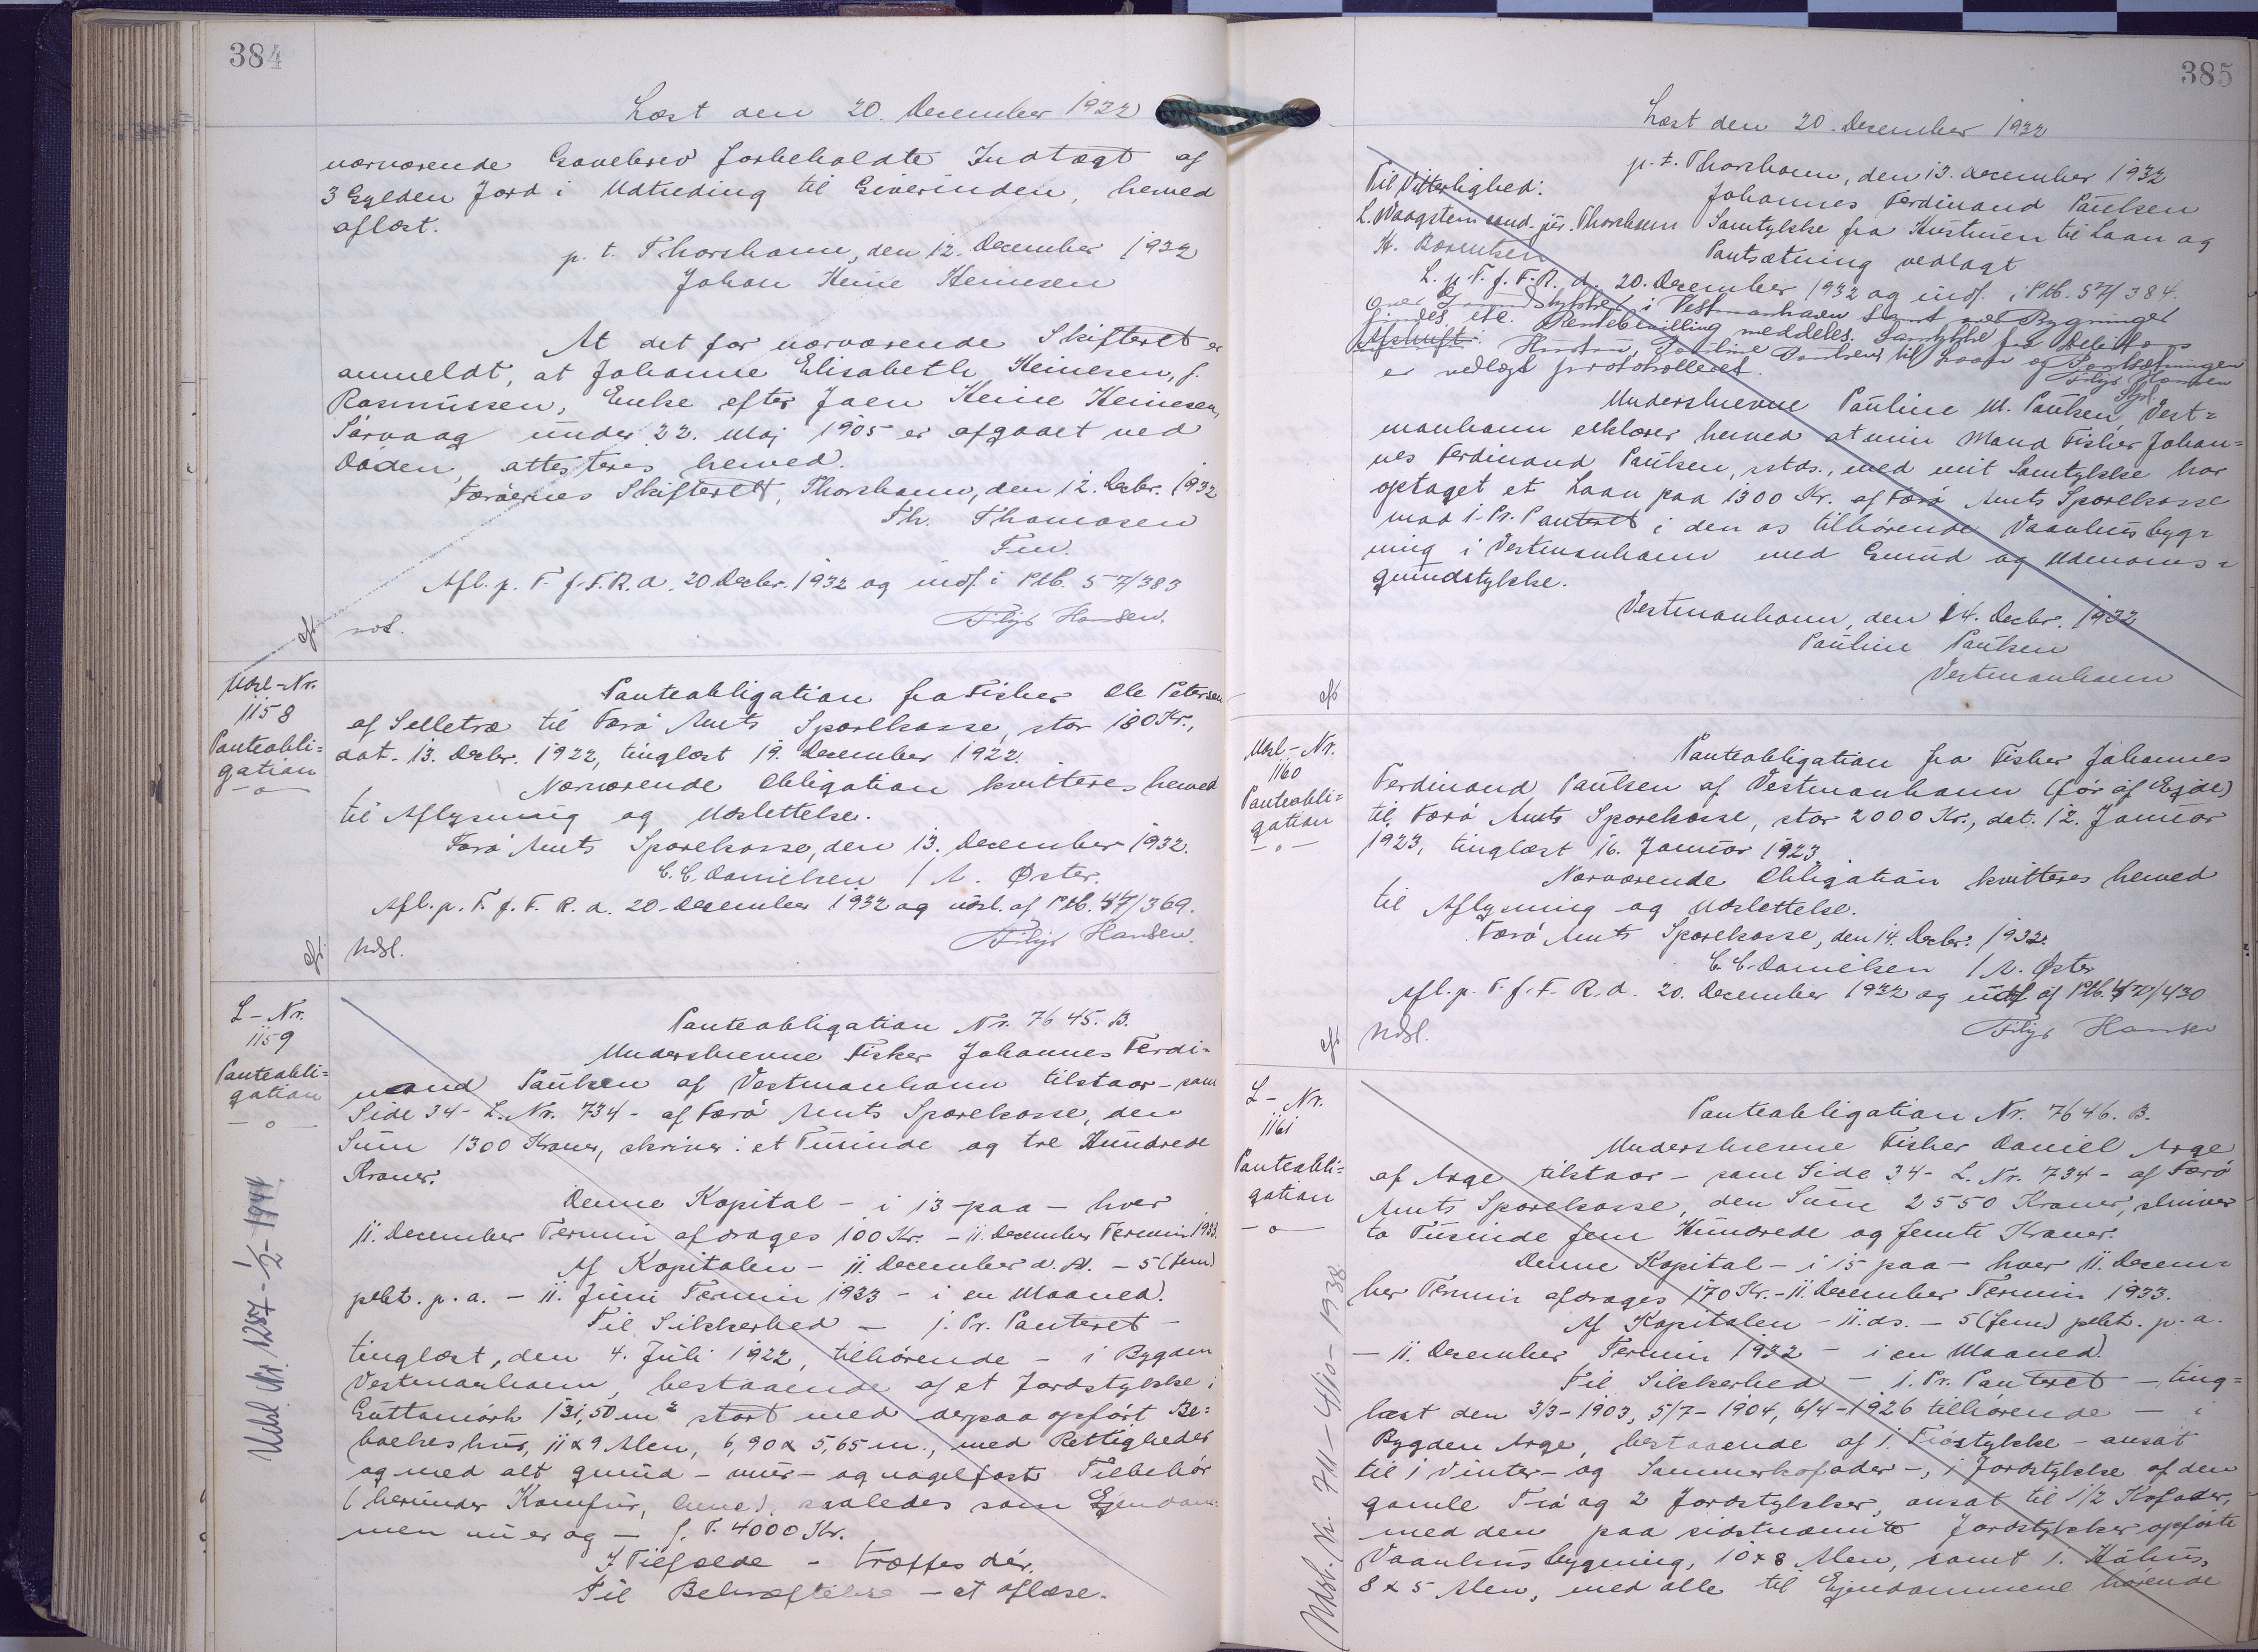 384
Læst den 20. December 1932
nærværende Gavebrev forbeholdte Indtægt af
3 Gylden Jord i Udtuding til Giverinden, herved
aflæst.
p. t. Thorshavn, den 12. December 1932
Johan Heine Heinesen
At det for nærværende Skifteret er
anmeldt, at Johanne Elisabeth Heinesen, f.
Rasmussen, Enke efter Joen Heine Heinesen,
Sørvaag under 22. Maj 1905 er afgaaet ved
Døden, attesteres herved.
Færøernes Skifteret, Thorshavn, den 12. Decbr. 1932
Th. Thomasen
Fm.
Afl. p. T. f. F. R. d. 20 Decbr. 1932 og indf. i Ptb. 57/383
Filip Hansen.
Udsl-Nr.
1158
Panteobli=
gation
Panteobligation fra Fisker Ole Petersen
af Selletræ til Færø Amts Sparekasse, stor 180 Kr.,
dat. 13. Decbr. 1922, tinglæst 19. December 1922.
Nærværende Obligation kvitteres herved
til Aflysning og Udslettelse.
Færø Amts Sparekasse, den 13. December 1932.
C. C. Danielsen / A. Øster.
Afl. p. T. f. F. R. d. 20. December 1932 og udsl. af Ptb. 47/369.
Filip Hansen.
Udsl.
L-Nr.
1159
Panteobli=
gation
Udsl. Nr. 1287 - 1/2 - 1944.
Panteobligation Nr. 7645. B.
Underskrevne Fisker Johannes Ferdi-
nand Paulsen af Vestmanhavn tilstaar - som
Side 34 - L. Nr. 734 - af Færø Amts Sparekasse, den
Sum 1300 Kroner, skriver: et Tusinde og tre Hundrede
Kroner.
Denne Kapital - i 13 - paa - hver
11. December Termin afdrages 100 Kr. - 11. December Termin 1933.
Af Kapitalen - 11. December d. A. - 5 (fem)
pCt. p. a. - 11. Juni Termin 1933 - i en Maaned.
Til Sikkerhed - 1. Pr. Panteret -
tinglæst, den 4. Juli 1922, tilhørende - i Bygden
Vestmanhavn, bestaaende af et Jordstykke i
131,50 m² stort med derpaa opført Be=
boelseshus, 11 x 9 Alen, 6,90 x 5,65 m., med Rettigheder
og med alt grund- mur- og nagelfast Tilbehør
(herunder Komfur, ), saaledes som Ejendom=
men nu er og - f. T. 4000 Kr.
I Tilfælde - træffes dér.
Til Bekræftelse - at aflæse.
385
Læst den 20. December 1932
p. t. Thorshavn, den 13. December 1932
Til Vitterlighed:
Johannes Ferdinand Paulsen
L. Waagstein cand. jur. Thorshavn Samtykke fra Hustruen til Laan og
H. Bærentsen Pantsætning vedlagt
L. p. T. f. F. R. d. 20. December 1932 og indf. i Ptb. 57/384.
i Vestmanhavn samt over Bygninger
findes etc. meddeles. Samtykke fra
Afskrift. Hustru, Pauline til Laan og Pantsætningen
er vedlagt protokolleret.
Filip Hansen
Underskrevne Pauline M. Paulsen, Vest=
manhavn erklærer herved at min Mand Fisker Johan=
nes Ferdinand Paulsen, sstds., med mit Samtykke har
optaget et Laan paa 1300 Kr. af Færø Amts Sparekasse
mod 1. Pr. Panteret i den os tilhørende Vaanhusbyg=
ning i Vestmanhavn med Grund og Udenoms=
grundstykke.
Vestmanhavn, den 14. Decbr. 1932
Pauline Paulsen
Vestmanhavn
Udsl-Nr.
1160
Panteobli=
gation
Panteobligation fra Fisker Johannes
Ferdinand Paulsen af Vestmanhavn (før af Ejde)
til Færø Amts Sparekasse, stor 2000 Kr., dat. 12. Januar
1923, tinglæst 16. Januar 1923.
Nærværende Obligation kvitteres herved
til Aflysning og Udslettelse.
Færø Amts Sparekasse, den 14. Decbr. 1932.
C. C. Danielsen / A. Øster
Afl. p. T. f. F. R. d. 20. December 1932 og af Ptb. 47/430
Filip Hansen
Udsl.
L-Nr.
1161
Panteobli=
gation
Udsl. Nr. 711 - 4/10 - 1938
Panteobligation Nr. 7646. B.
Underskrevne Fisker Daniel Arge
af Arge tilstaar - som Side 34 - L. Nr. 734 - af Færø
Amts Sparekasse, den Sum 2550 Kroner, skriver
to Tusinde fem Hundrede og femti Kroner.
Denne Kapital - i 15 paa - hver 11. Decem=
ber Termin afdrages 170 Kr. - 11. December Termin 1933.
Af Kapitalen - 11. ds. - 5 (fem) pCt. p. a.
- 11. December Termin 1932 - i en Maaned.
Til Sikkerhed - 1. Pr. Panteret - ting=
læst den 3/3 - 1903, 5/7 - 1904, 6/4 - 1926 tilhørende - i
Bygden Arge, bestaaende af 1. Trøstykke - ansat
til 1 Vinter- og Sommerkofoder -, 1 Jordstykke af den
gamle Trø og 2 Jordstykker, ansat til 1/2 Kofoder,
med den paa sidstnævnte Jordstykker opførte
Vaanhusbygning, 10 x 8 Alen, samt 1. Kohus,
8 x 5 Alen, med alle til Ejendommene hørende